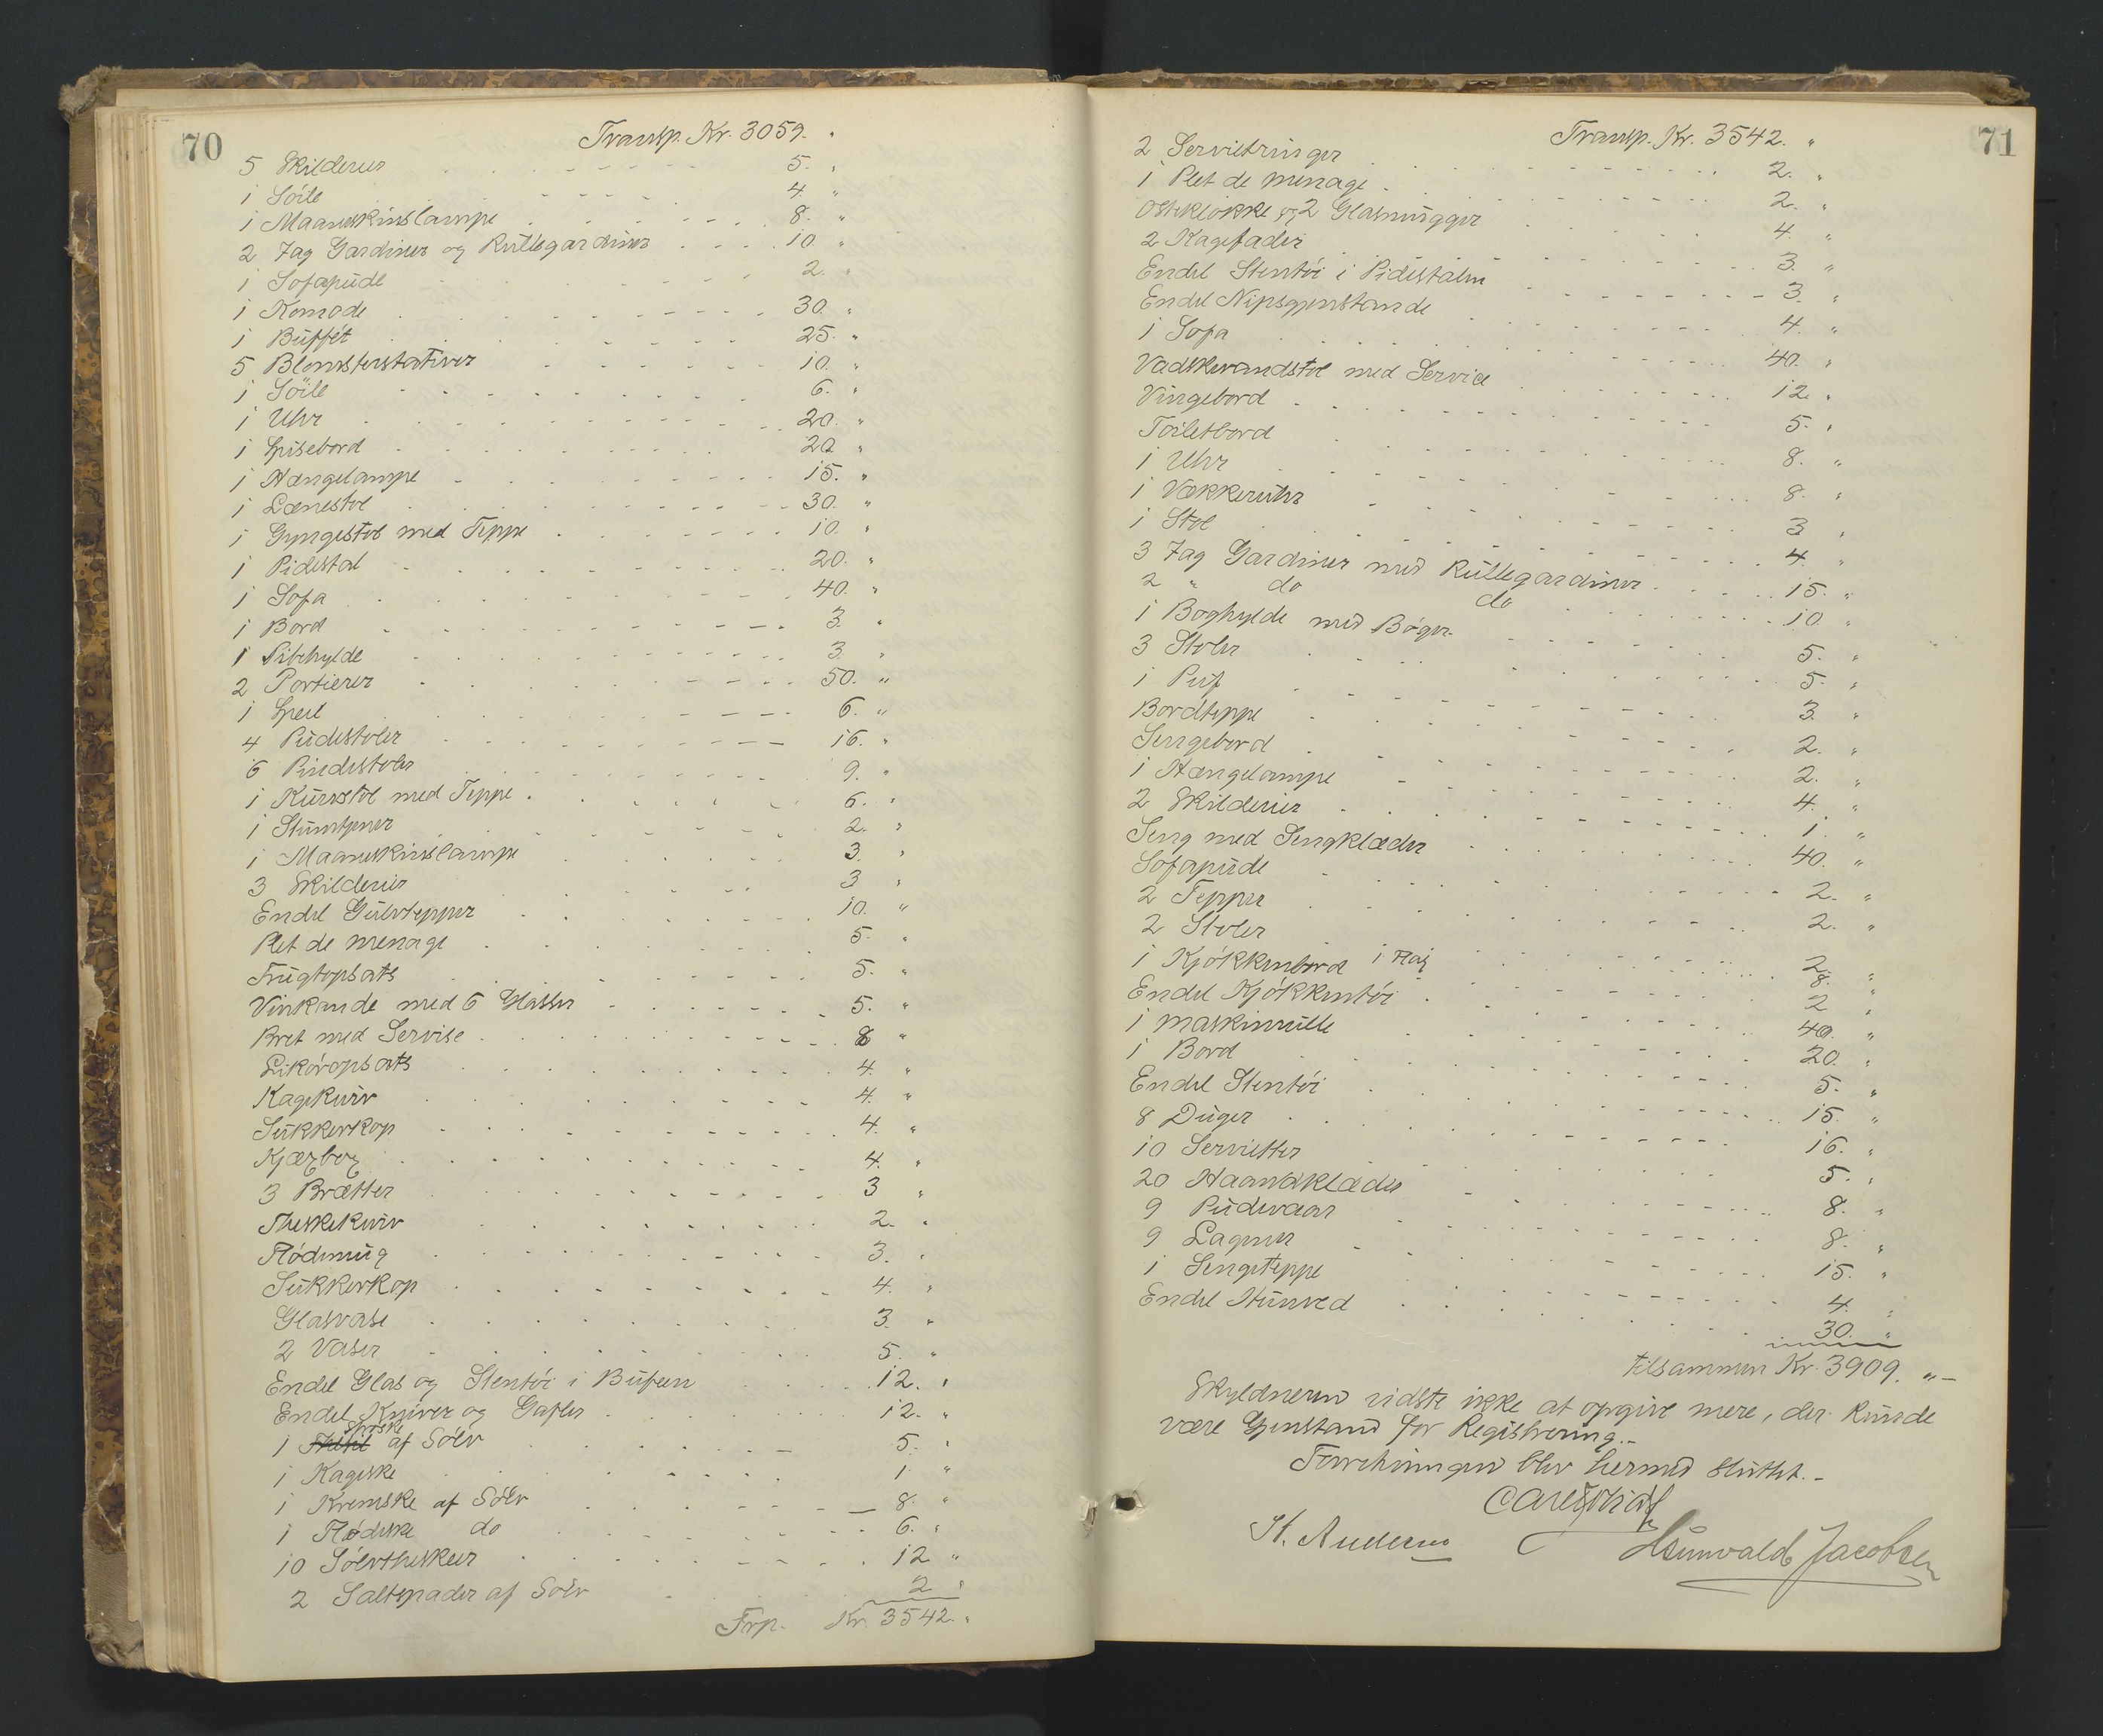 70
Transp. Kr. 3059. "
5 Skilderier 5. "
1 Söile 4 "
1 Maaneskinslampe 8. "
2 Fag Gardiner og Rullegardiner 10 "
1 Sofapude 2. "
1 Komode 30. "
1 Buffét 25. "
5 Blomsterstativer 10. "
1 Söile 6. "
1 Uhr 20. "
1 Spisebord 20 "
1 Hængelampe 15. "
1 Lænestol 30. "
1 Gyngestol med Teppe 10. "
1 Pidestal 20. "
1 Sofa 40. "
1 Bord 3. "
1 Pibehylde 3. "
2 Portierer 50. "
1 Speil 6. "
4 Pudestoler 16. "
6 Pindestoler 9. "
1 Kurvstol med Teppe 6. "
1 Stumtjener 2. "
1 Maaneskinslampe 3. "
3 Skilderier 3 "
Endel Gulvtepper 10. "
Plet de menage 5. "
Frugtopsats 5. "
Vinkande med 6 Glasser 5. "
Bret med Servise 8 "
Likøropsats 4. "
Kagekurv 4. "
Sukkerkop 4. "
Kjæxbox 4. "
3 Brætter 3 "
Theskekurv 2. "
Flødemug 3. "
Sukkerkop 4. "
Glasvase 3. "
2 Vaser 5. "
Endel Glas og Stentöi i Bufeen 12. "
Endel Kniver og Gafler 12. "
1 Spiseske af Sölv 5. "
1 Kageske 1. "
1 Kremske af Sölv 8. "
1 Flødeske do 6. "
10 Sölvtheskeer 12 "
2 Saltspader af Sölv 2 "
Frp. Kr. 3542. "
71
Transp. Kr. 3542. "
2 Servietringer 2. "
1 Plet de menage 2. "
Osteklokke og 2 Glasmugger 4. "
2 Kagefader 3. "
Endel Stentöi i Pidestalen 3. "
Endel Nipsgjenstande 4. "
1 Sofa 40. "
Vadskevandstol med Service 12. "
Vingebord 5. "
Toiletbord 8. "
1 Uhr 8. "
1 Vækkeruhr 3 "
1 Stol 4. "
3 Fag Gardiner med Rullegardiner 15. "
2 " do do 10 "
1 Boghylde med Bøger 5. "
3 Stoler 5. "
1 Puf 3. "
Bordteppe 2. "
Sengebord 2. "
1 Hængelampe 4. "
2 Skilderier 1. "
Seng med Sengklæder 40. "
Sofapude 2. "
2 Tepper 2. "
2 Stoler 2. "
1 Kjøkkenbord 8. "
Endel Kjøkkentöi 40. "
1 Maskinrulle 20. "
1 Bord 5. "
Endel Stentöi 15. "
8 Duger 16. "
10 Servietter 5. "
20 Haandklæder 8. "
9 Pudevaar 8. "
9 Lagener 15. "
1 Sengeteppe 4. "
Endel Husved 30. "
tilsammen Kr. 3909. "–
Skyldneren vidste ikke at opgive mere, der kunde
være Gjenstand for Registrering.–
Forretningen blev hermed sluttet.–
St. Andersen
Jacobsen